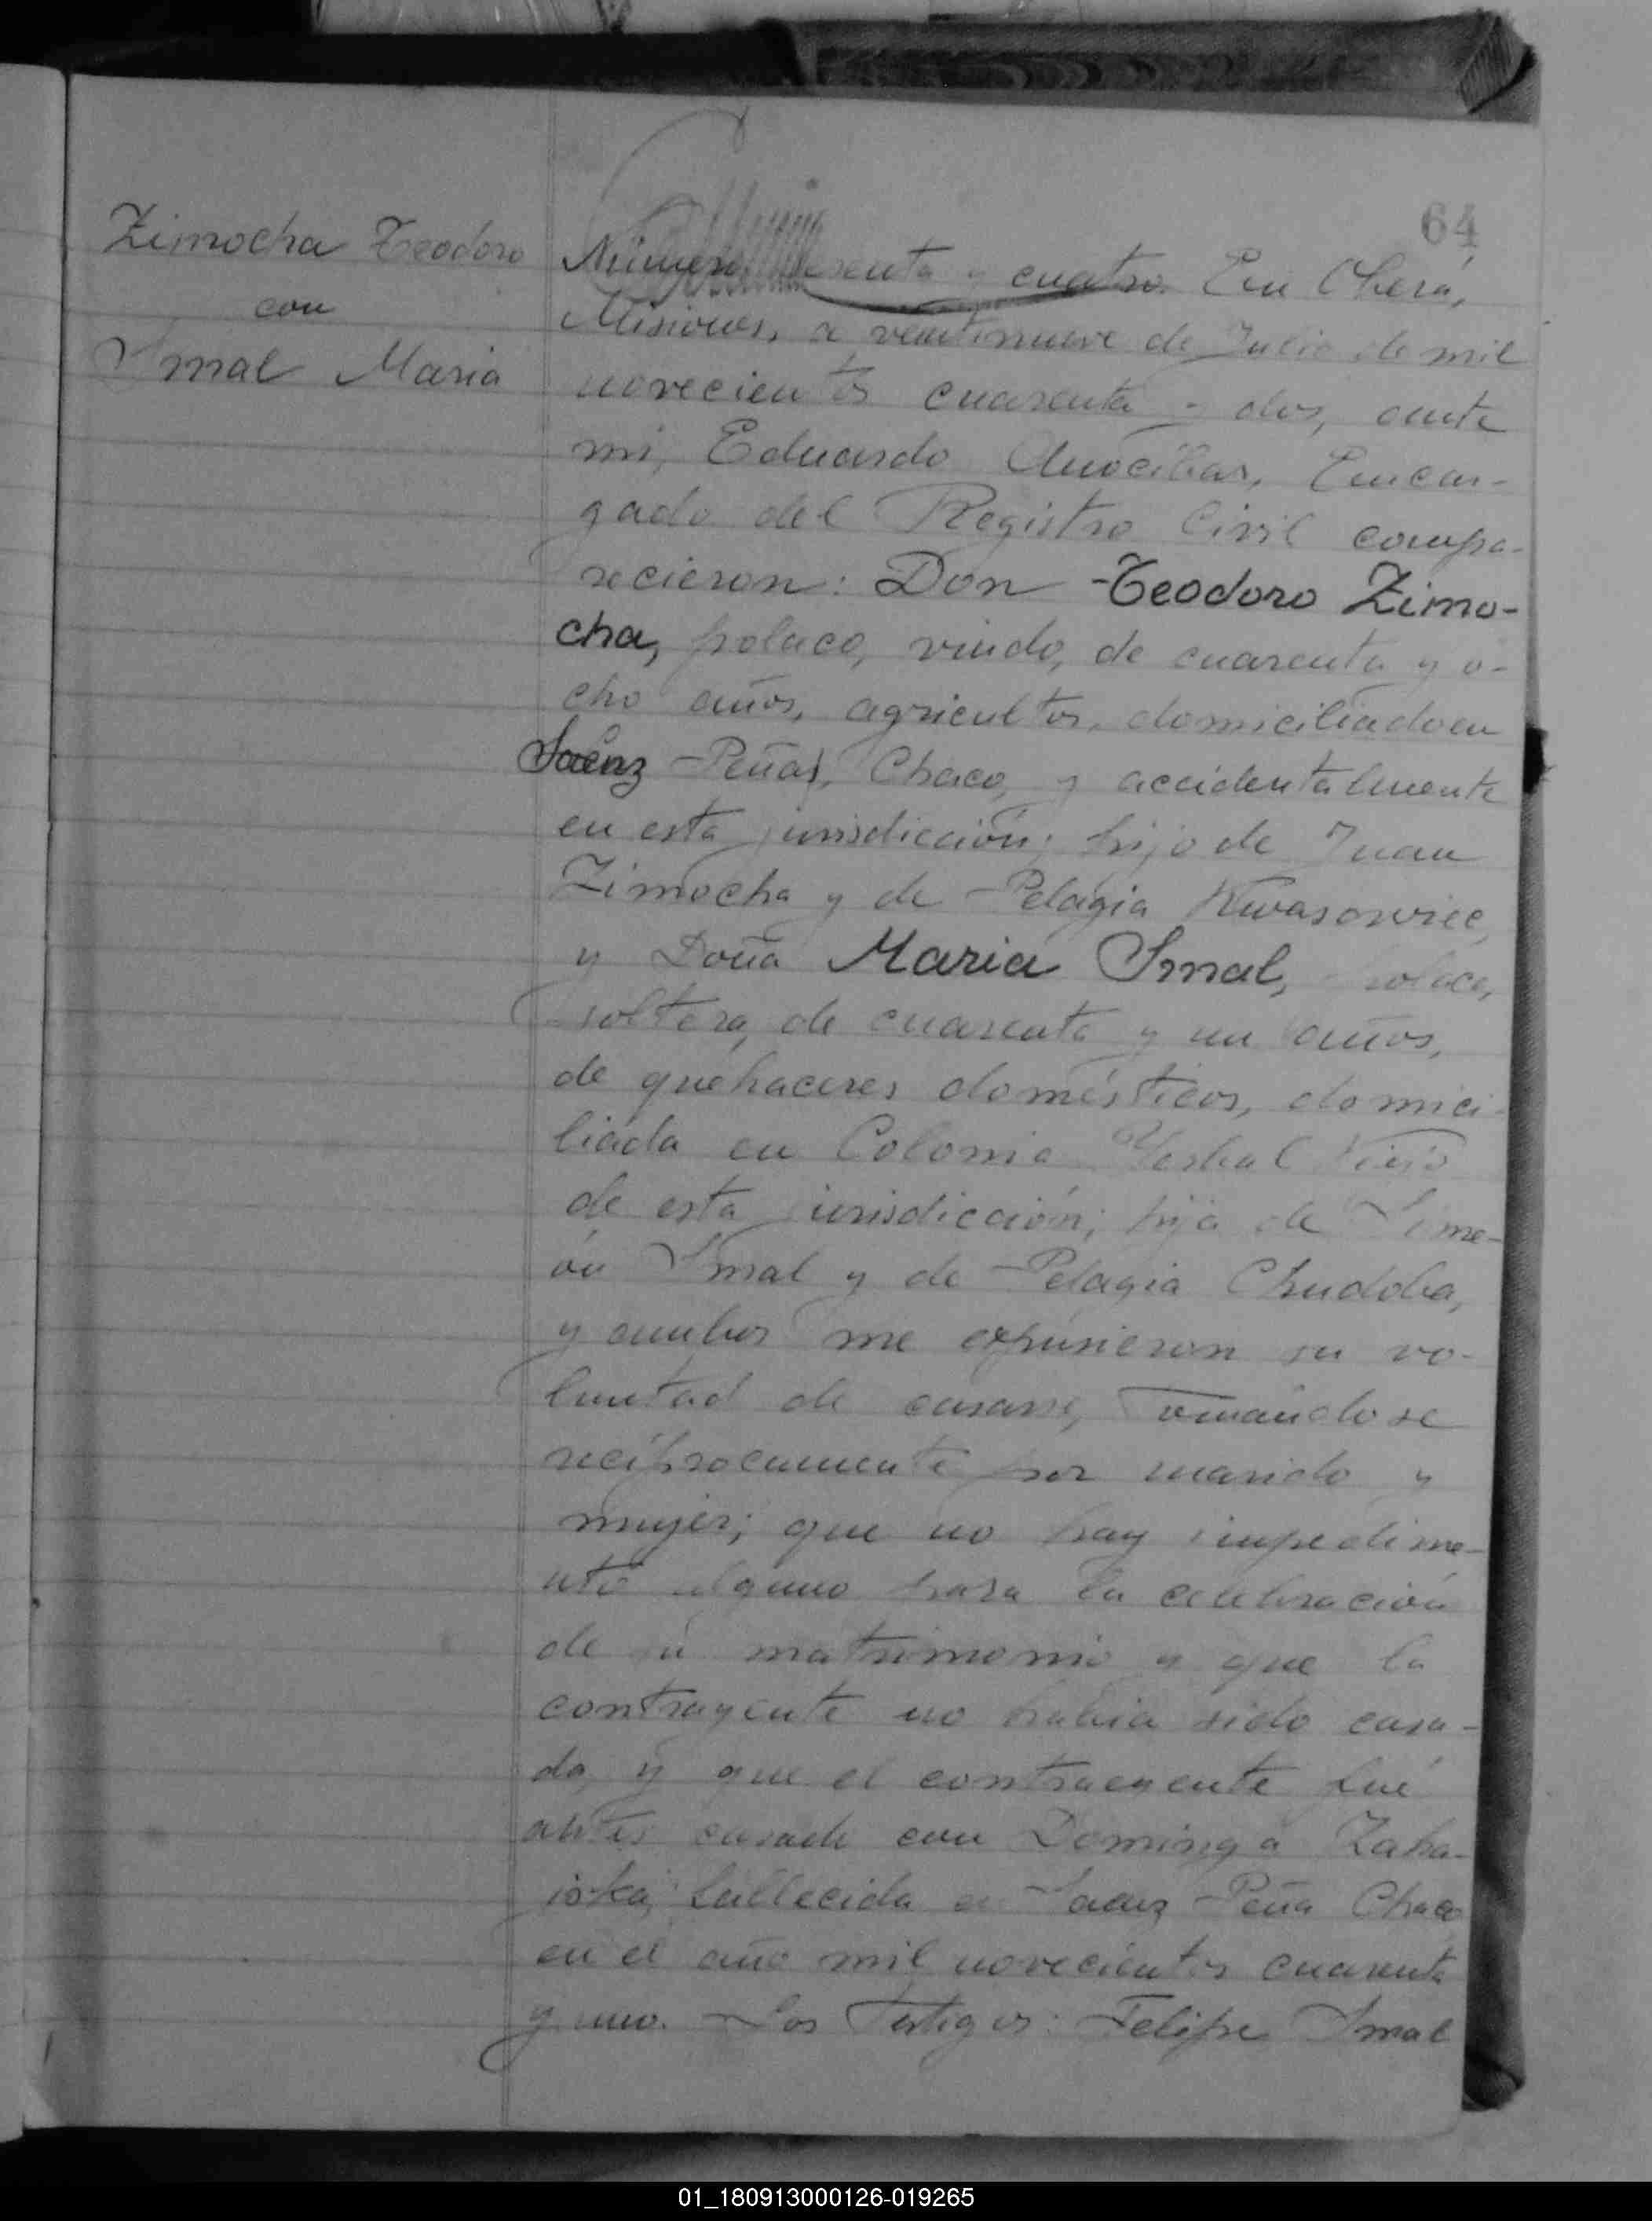 64
Zimocha Teodoro
con
Smal Maria
Número sesenta y cuatro. En Oberá,
Misiones, a veintinueve de Julio de mil
novecientos cuarenta y dos, ante
mi, Eduardo Encar-
gado del Registro Civil compa-
recieron: Don Teodoro Zimo-
cha, polaco, viudo, de cuarenta y o-
cho años, agricultor, domiciliado en
Saénz Peña, Chaco, y accidentalmente
en esta jurisdicción; hijo de Juan
Zimocha y de Pelagia
y Doña Maria Smal, polaca,
soltera, de cuarenta y un años,
de quehaceres domésticos, domici-
liada en Colonia Yerbal Viejo
de esta jurisdicción; hija de Sime-
ón Smal y de Pelagia Chudoba,
y ambos me expusieron su vo-
luntad de casarse, tomándose
recíprocamente por marido y
mujer; que no hay impedime-
nto alguno para la celebración
de su matrimonio y que la
contrayente no habia sido casa-
da, y que el contrayente fué
antes casado con Dominga Zaha-
iska, fallecida en Saenz Peña Chaco
en el año mil novecientos cuarenta
y uno. Los Testigos: Felipe Smal
01_180913000126-019265